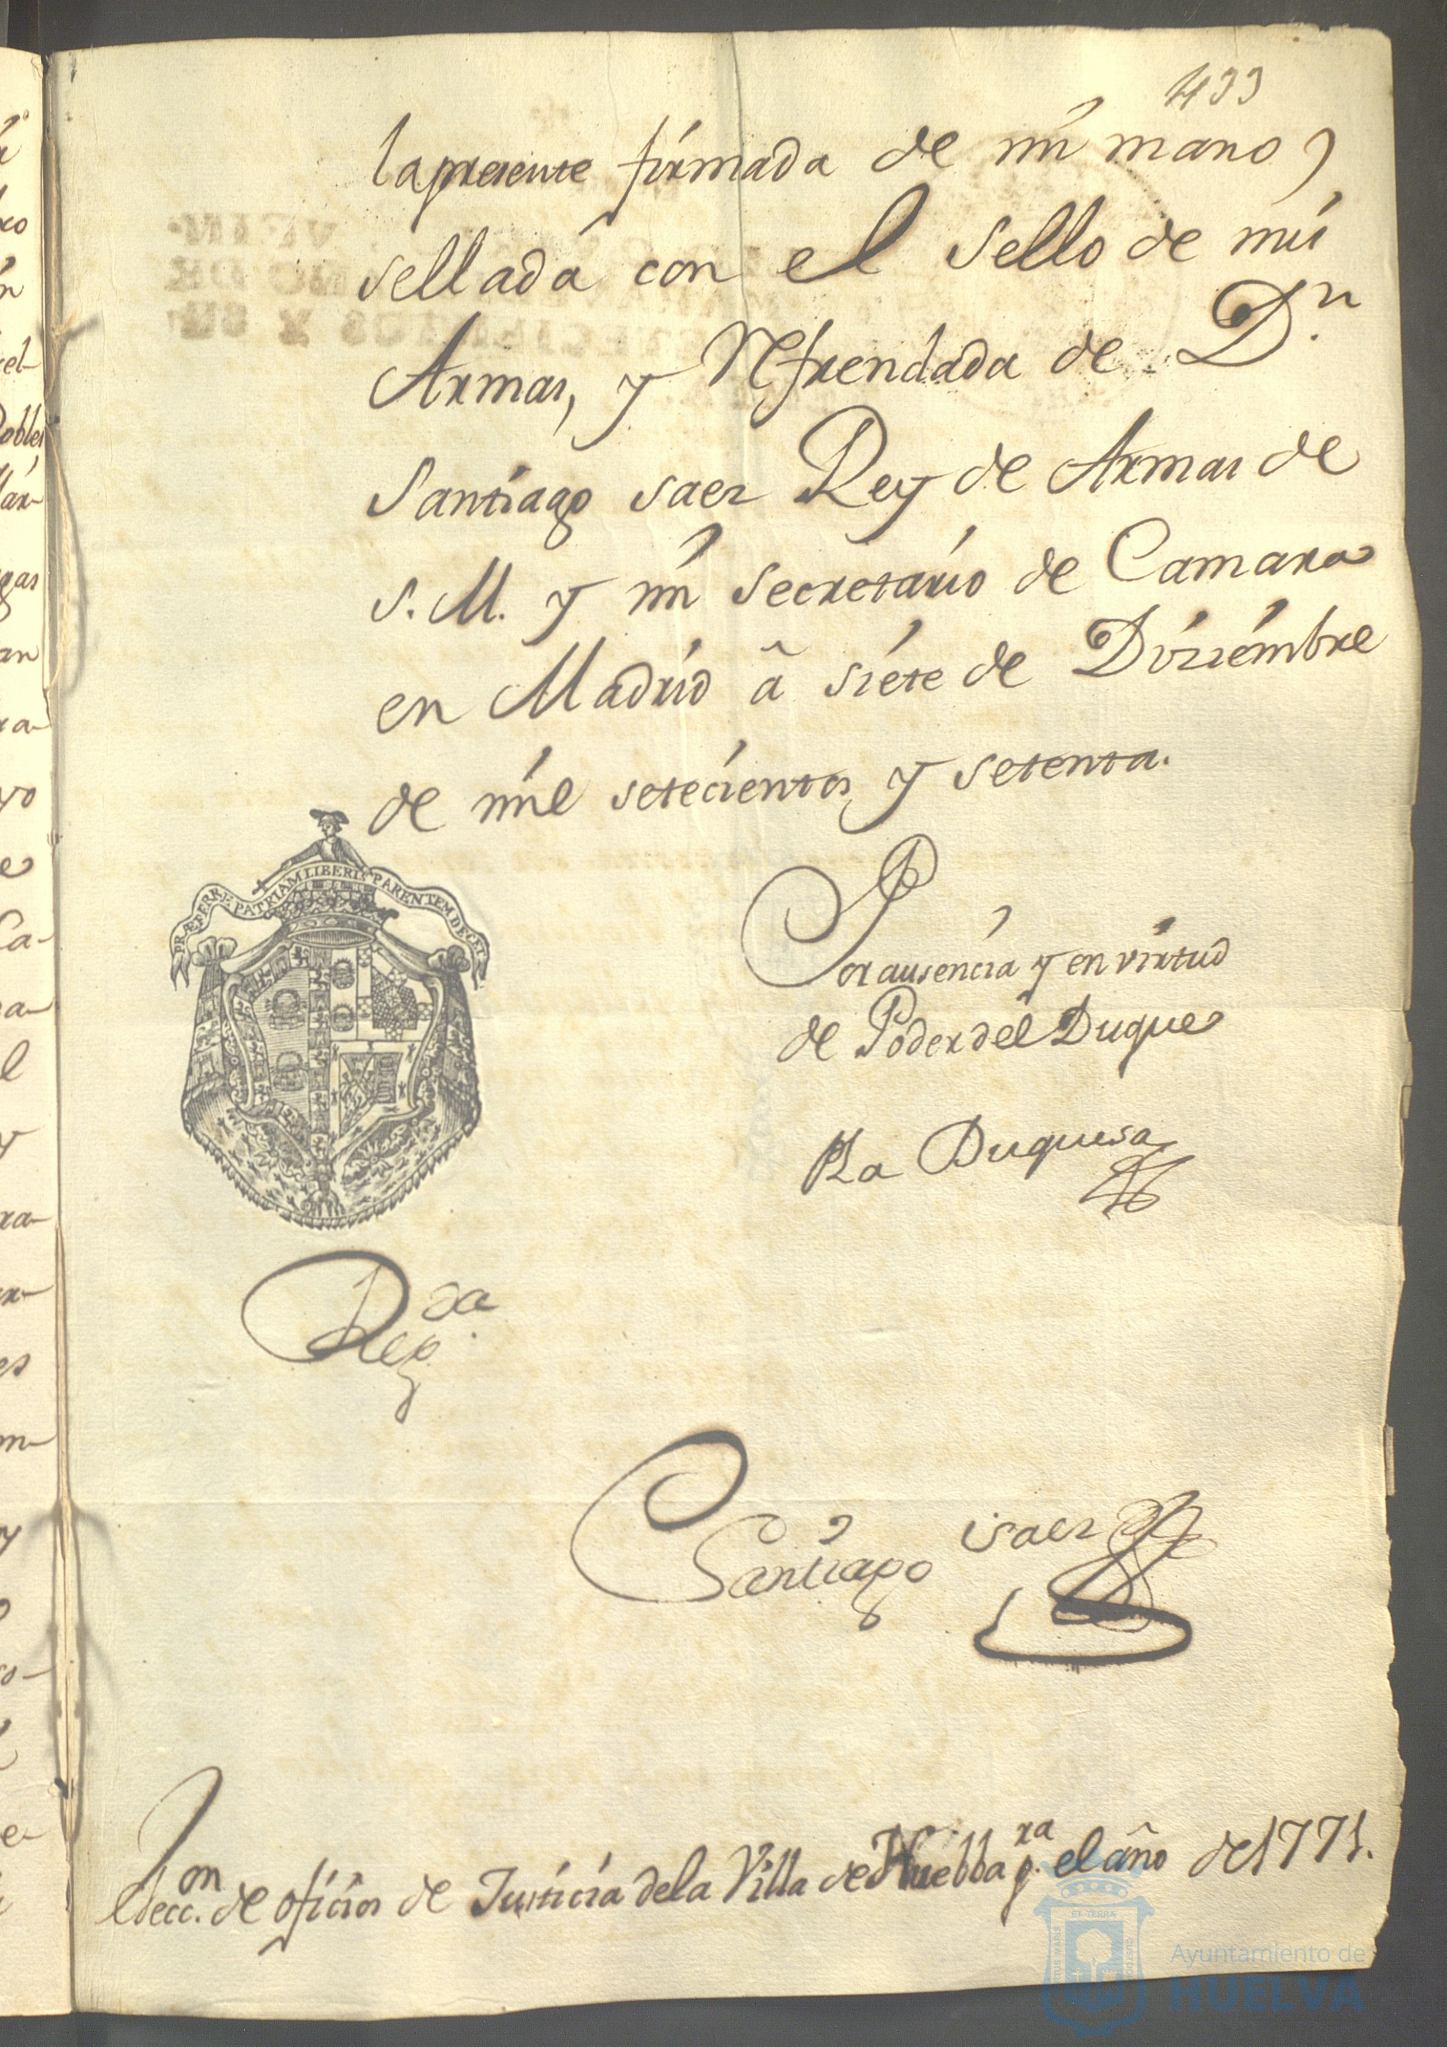 433
la presente firmada de mi mano,
sellada con el sello de mis
Armas, y Refrendada de Dn.
Santiago Saez Rey de Armas de
S. M. y mi Secretario de Camara
en Madrid â siete de Diziembre
de mil setecientos y setenta.
PRÆFERRE PATRIAM LIBERIS PARENTEM DECET
Por ausencia y en virtud
de Poder del Duque
La Duquesa
Regda.
Santiago Saez
Elecc.on de oficios de Justicia de la Villa de Huelba p.ra el año de 1771.
Ayuntamiento de
HUELVA